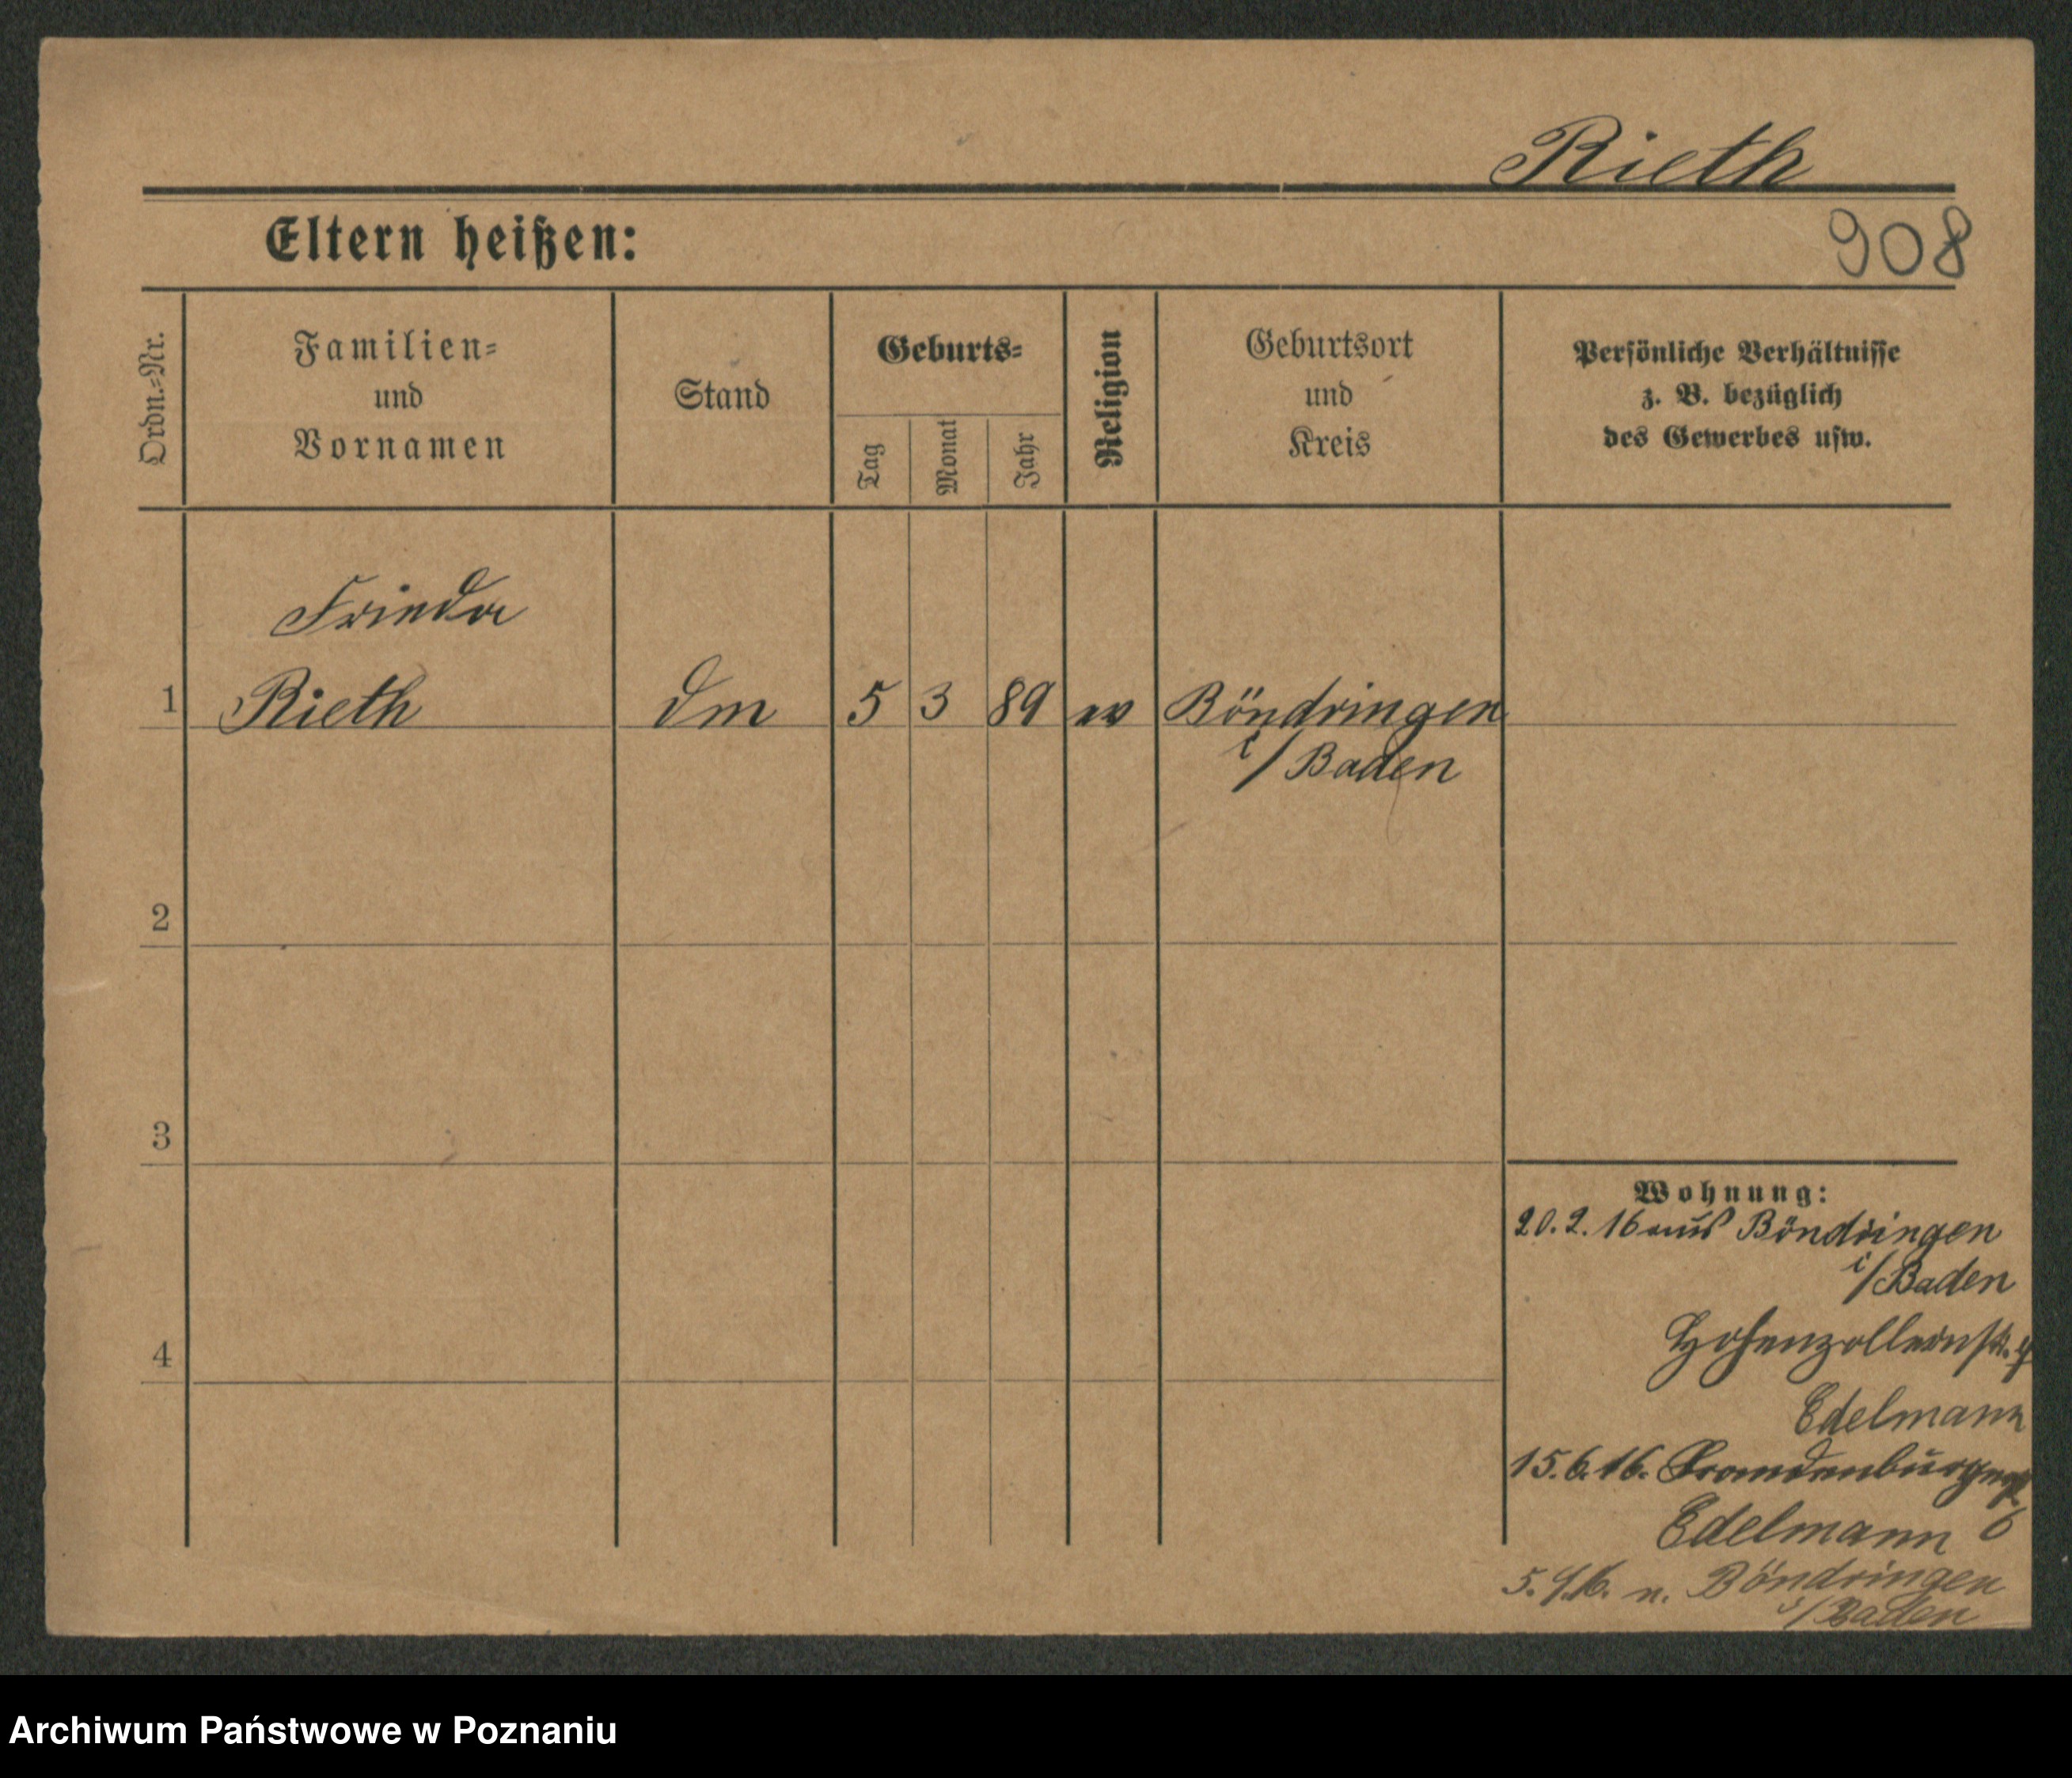 Rieth
908
Eltern heißen:
Ordn.=Nr.
Familien=
und
Vornamen
Stand
Geburts=
Tag
Monat
Jahr
Religion
Geburtsort
und
Kreis
Persönliche Verhältnisse
z. B. bezüglich
des Gewerbes usw.
Frieda
1 Rieth Dm 5 3 89 ev Böndringen
i/Baden
2
3
4
Wohnung:
20.2.16 aus Böndringen
i/Baden
Hohenzollernstr.
Edelmann
15.6.16. Brandenburgerstr
Edelmann 6
n. Böndringen
i/Baden
Archiwum Państwowe w Poznaniu